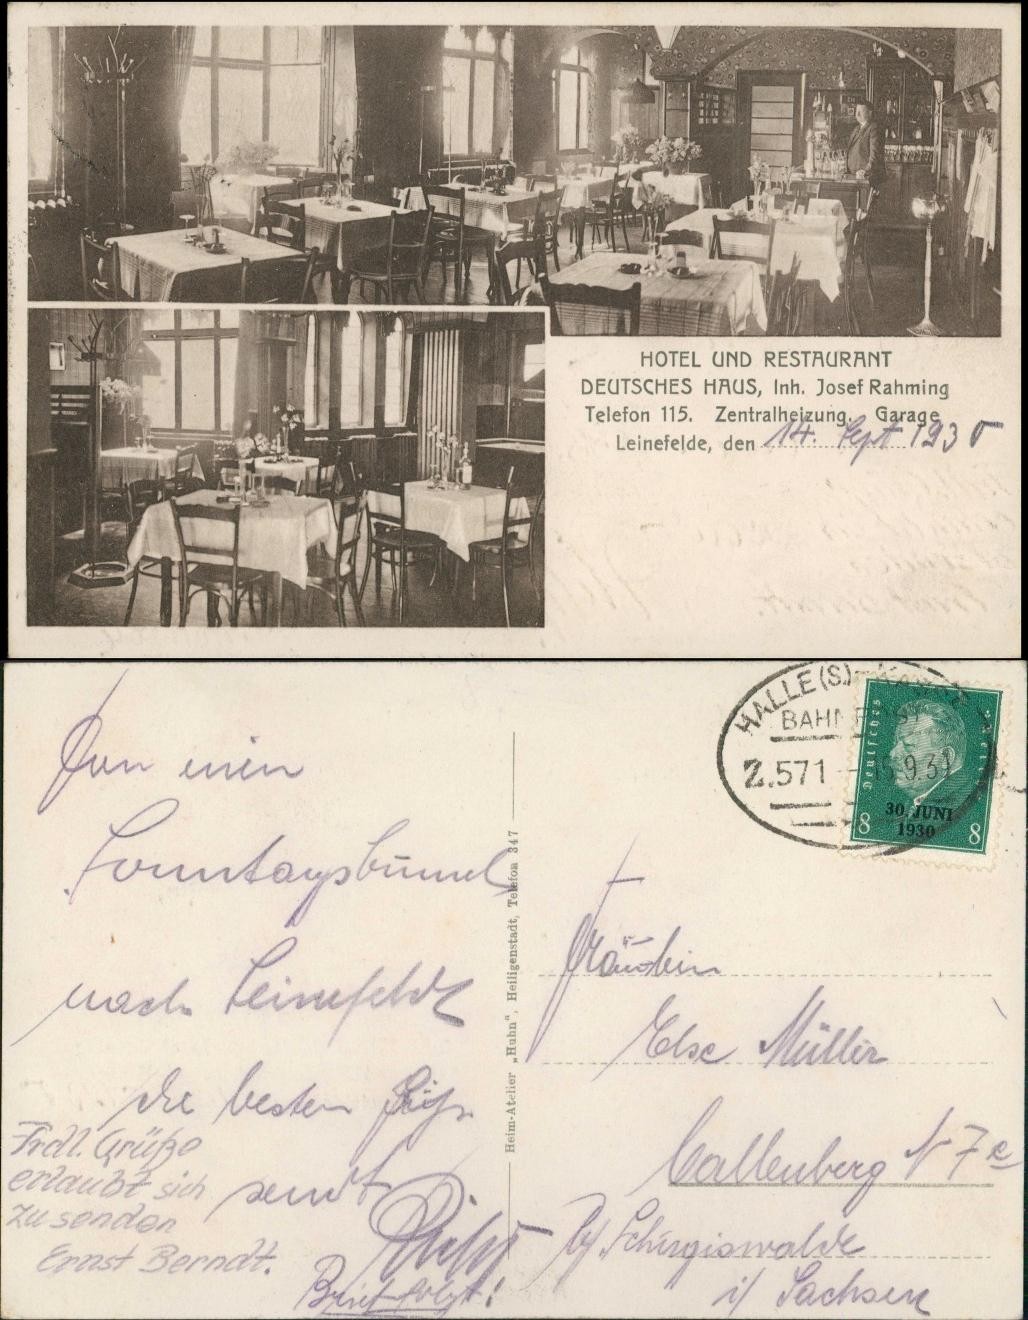 HOTEL UND RESTAURANT
DEUTSCHES HAUS, Inh. Josef Rahming
Telefon 115. Zentralheizung. Garage
Leinefelde, den 14. Sept 1930
HALLE (S)
BAHNPOST
Z.571
9.30
Deutsches Reich
30. JUNI
1930
8 8
Von einem
Sonntagsbummel
nach Leinefelde
die besten Grüße
sendt
Frdl. Grüße
erlaubt sich
zu senden
Ernst Berndt.
Brief folgt!
Heim-Atelier „Huhn", Heiligenstadt, Telefon 347
Fräulein
Else Müller
Callenberg N 7
b/ Schirgiswalde
i/ Sachsen